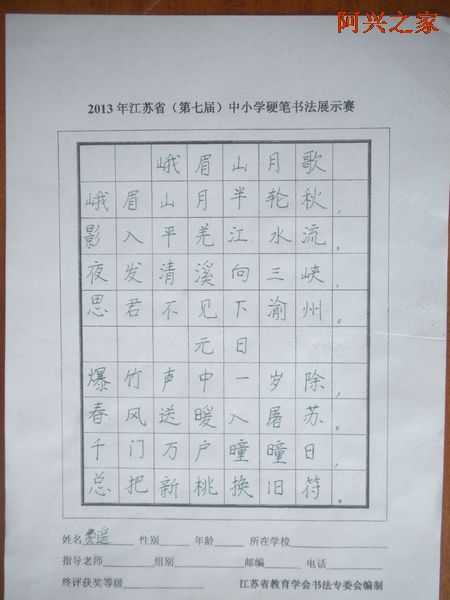 阿兴之家
2013年江苏省（第七届）中小学硬笔书法展示赛
峨眉山月歌
峨眉山月半轮秋，
影入平羌江水流。
夜发清溪向三峡，
思君不见下渝州。
元日
爆竹声中一岁除，
春风送暖入屠苏。
千门万户瞳瞳日，
总把新桃换旧符。
姓名 性别 年龄 所在学校
指导老师 组别 邮编 电话
终评获奖等级 江苏省教育学会书法专委会编制